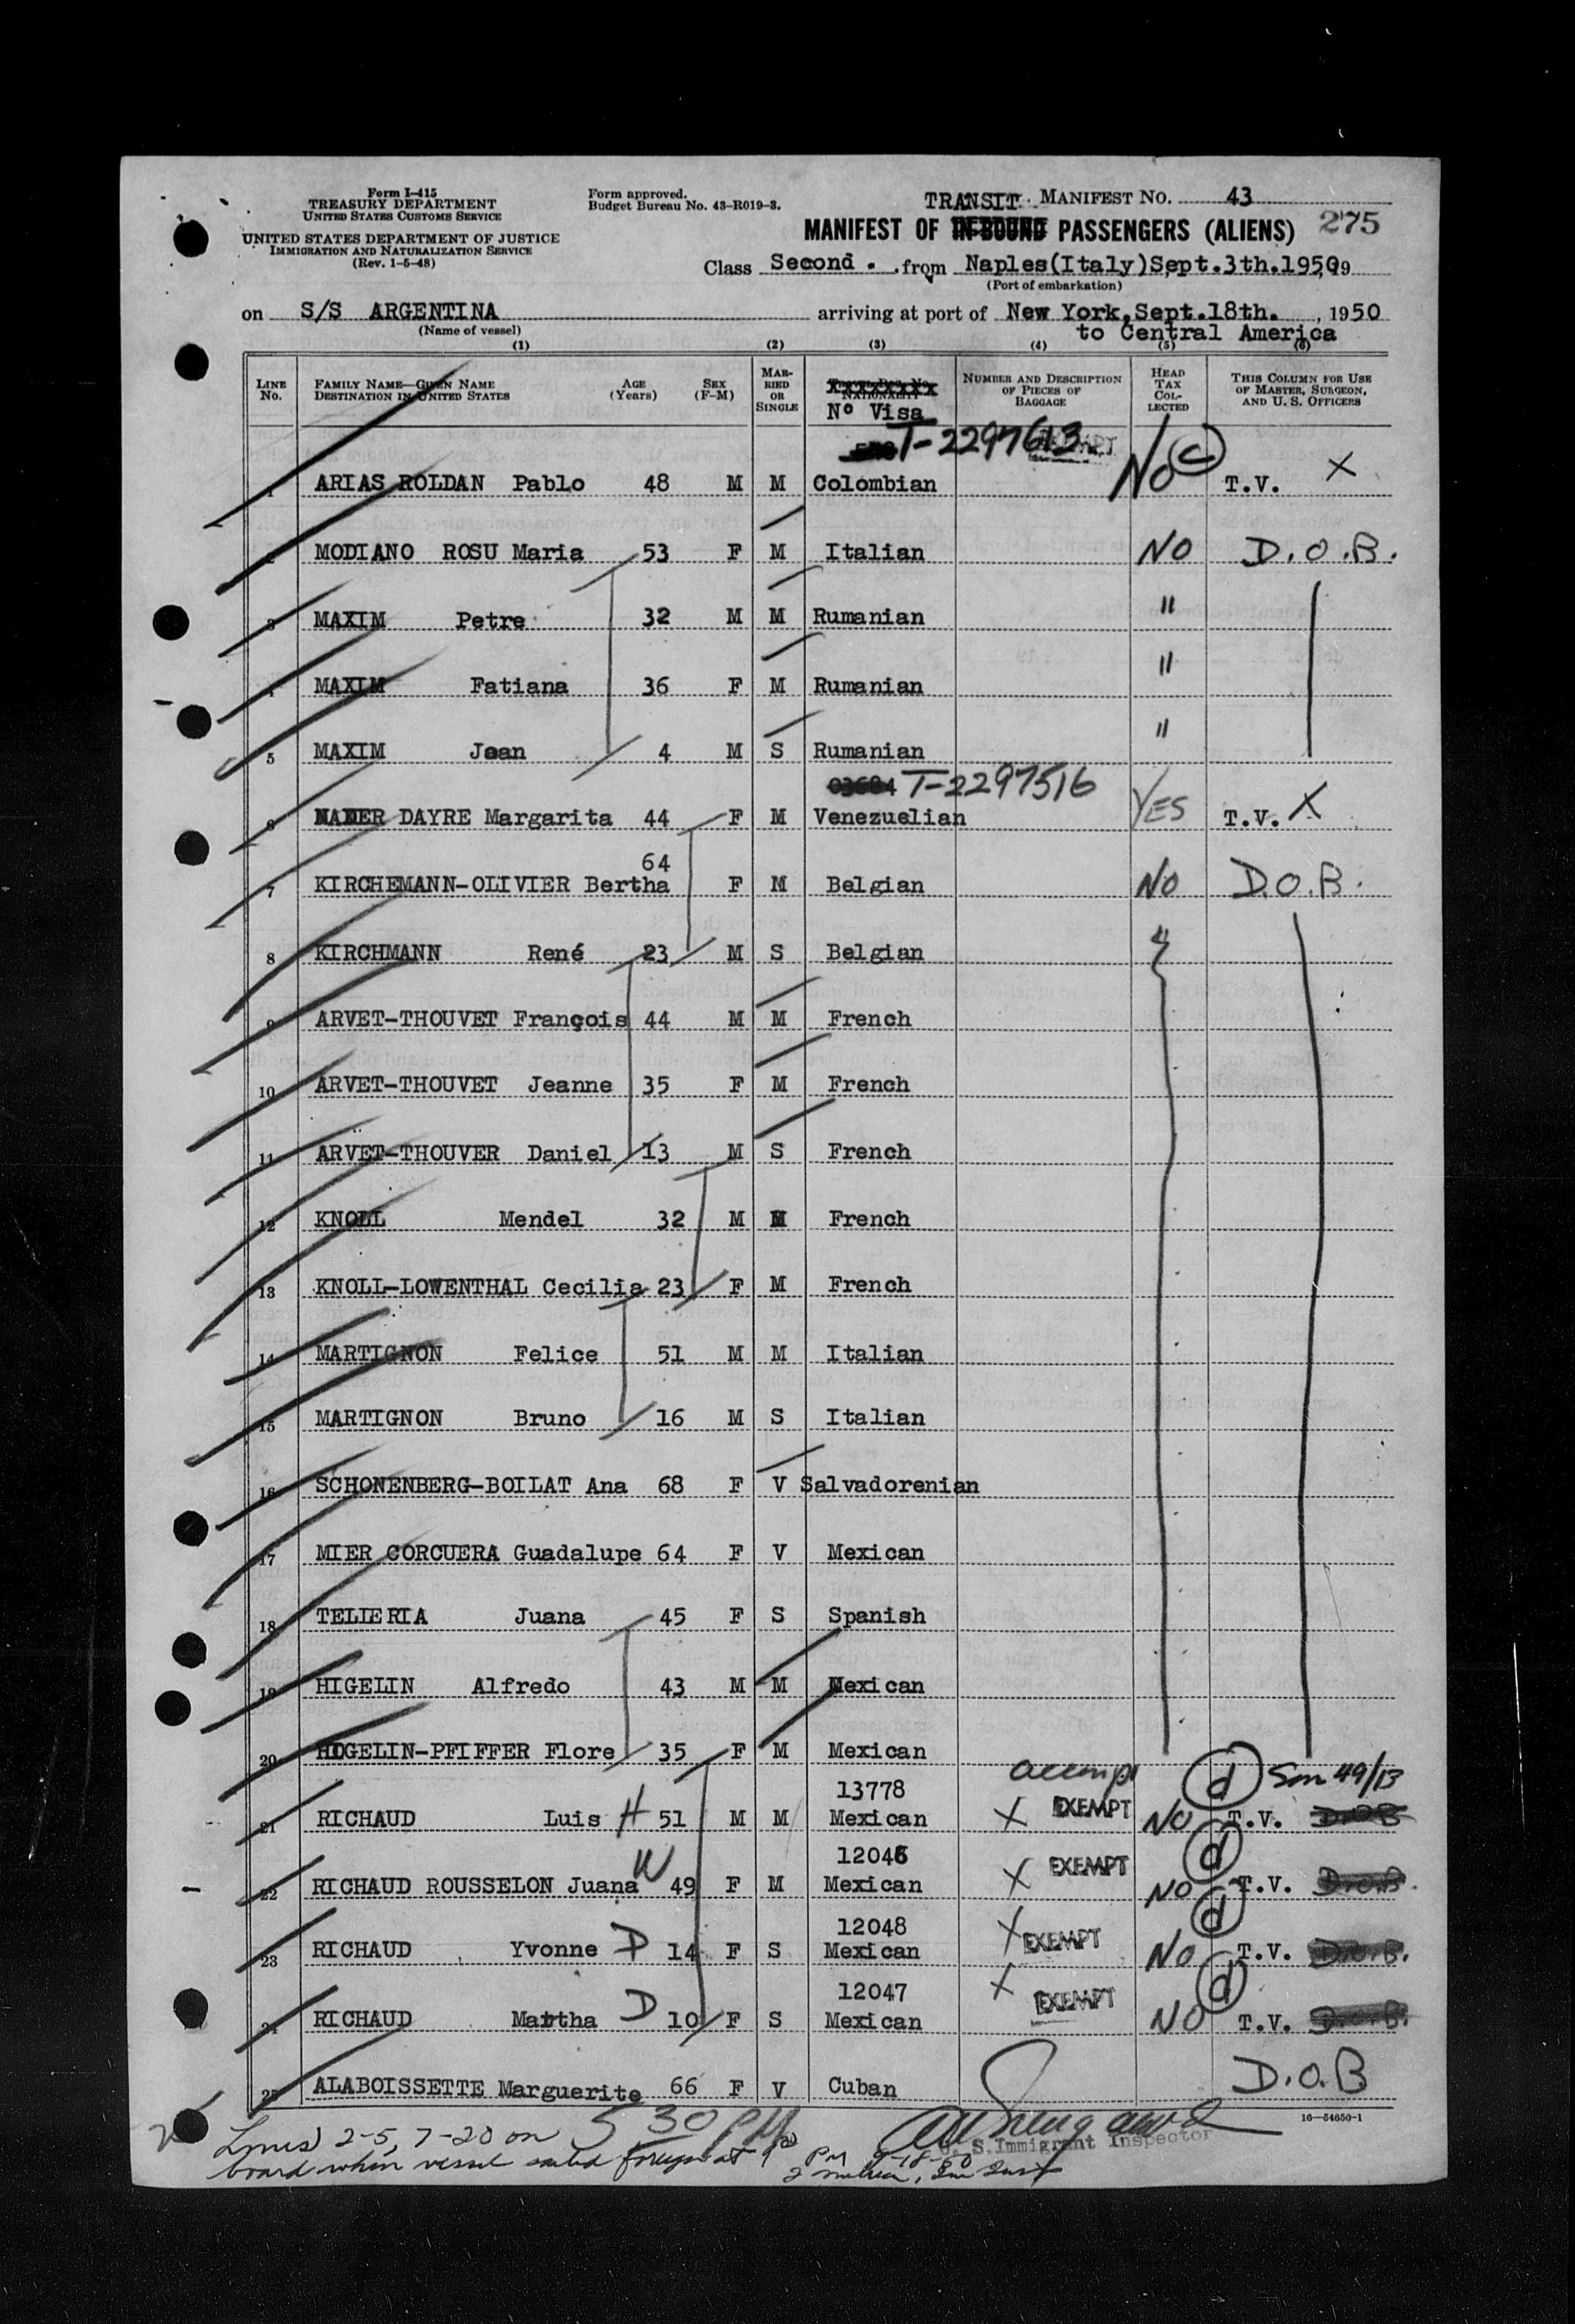 Form I-415
TREASURY DEPARTMENT
UNITED STATES CUSTOMS SERVICE
UNITED STATES DEPARTMENT OF JUSTICE
IMMIGRATION AND NATURALIZATION SERVICE
(Rev. 1-5-48)
Form approved.
Budget Bureau No. 43-R019-3.
TRANSIT MANIFEST NO. 43
MANIFEST OF INBOUND PASSENGERS (ALIENS) 275
Class Second. from Naples(Italy)Sept.3th.1950, 19
(Port of embarkation)
on S/S ARGENTINA arriving at port of New York,Sept.18th. , 1950
(Name of vessel) to Central America
(1) (2) (3) (4) (5) (6)
LINE No. FAMILY NAME—GIVEN NAME DESTINATION IN UNITED STATES AGE (Years) SEX (F-M) MARRIED OR SINGLE NATIONALITY No Visa NUMBER AND DESCRIPTION OF PIECES OF BAGGAGE HEAD TAX COLLECTED THIS COLUMN FOR USE OF MASTER, SURGEON, AND U. S. OFFICERS
T-2297613 EXEMPT
1 ARIAS ROLDAN Pablo 48 M M Colombian No (c) T.V. X
2 MODIANO ROSU Maria 53 F M Italian NO D.O.B.
3 MAXIM Petre 32 M M Rumanian "
4 MAXIM Fatiana 36 F M Rumanian "
5 MAXIM Jean 4 M S Rumanian "
03684 T-2297516
6 NADER DAYRE Margarita 44 F M Venezuelian YES T.V. X
64
7 KIRCHEMANN-OLIVIER Bertha F M Belgian NO D.O.B.
8 KIRCHMANN René 23 M S Belgian "
9 ARVET-THOUVET François 44 M M French
10 ARVET-THOUVET Jeanne 35 F M French
11 ARVET-THOUVER Daniel 13 M S French
12 KNOLL Mendel 32 M M French
13 KNOLL-LOWENTHAL Cecilia 23 F M French
14 MARTIGNON Felice 51 M M Italian
15 MARTIGNON Bruno 16 M S Italian
16 SCHONENBERG-BOILAT Ana 68 F V Salvadorenian
17 MIER CORCUERA Guadalupe 64 F V Mexican
18 TELLERIA Juana 45 F S Spanish
19 HIGELIN Alfredo 43 M M Mexican
20 HIGELIN-PFIFFER Flore 35 F M Mexican
13778 (d) 49/13
21 RICHAUD Luis H 51 M M Mexican X EXEMPT NO T.V. D.O.B
12046 (d)
22 RICHAUD ROUSSELON Juana W 49 F M Mexican X EXEMPT NO T.V. D.O.B.
12048 (d)
23 RICHAUD Yvonne D 14 F S Mexican X EXEMPT NO T.V. D.O.B.
12047 (d)
24 RICHAUD Martha D 10 F S Mexican X EXEMPT NO T.V. D.O.B.
25 ALABOISSETTE Marguerite 66 F V Cuban D.O.B
16—54650-1
Lines 2-5, 7-20 on 530 PM
U. S. Immigrant Inspector
board when vessel sailed foreign at PM 9-18-50